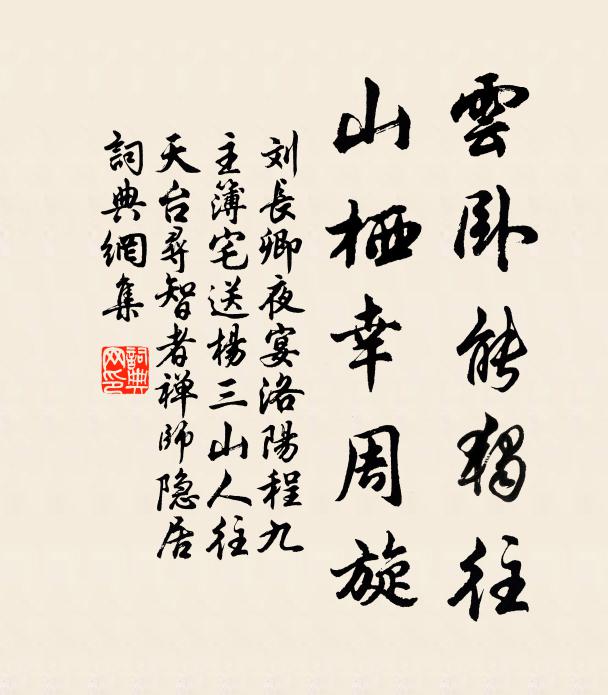 雲卧能獨往
山栖幸周旋
刘長卿夜宴洛陽程九
主簿宅送楊三山人往
天台尋智者禅師隐居
詞典網集
詞典
网印